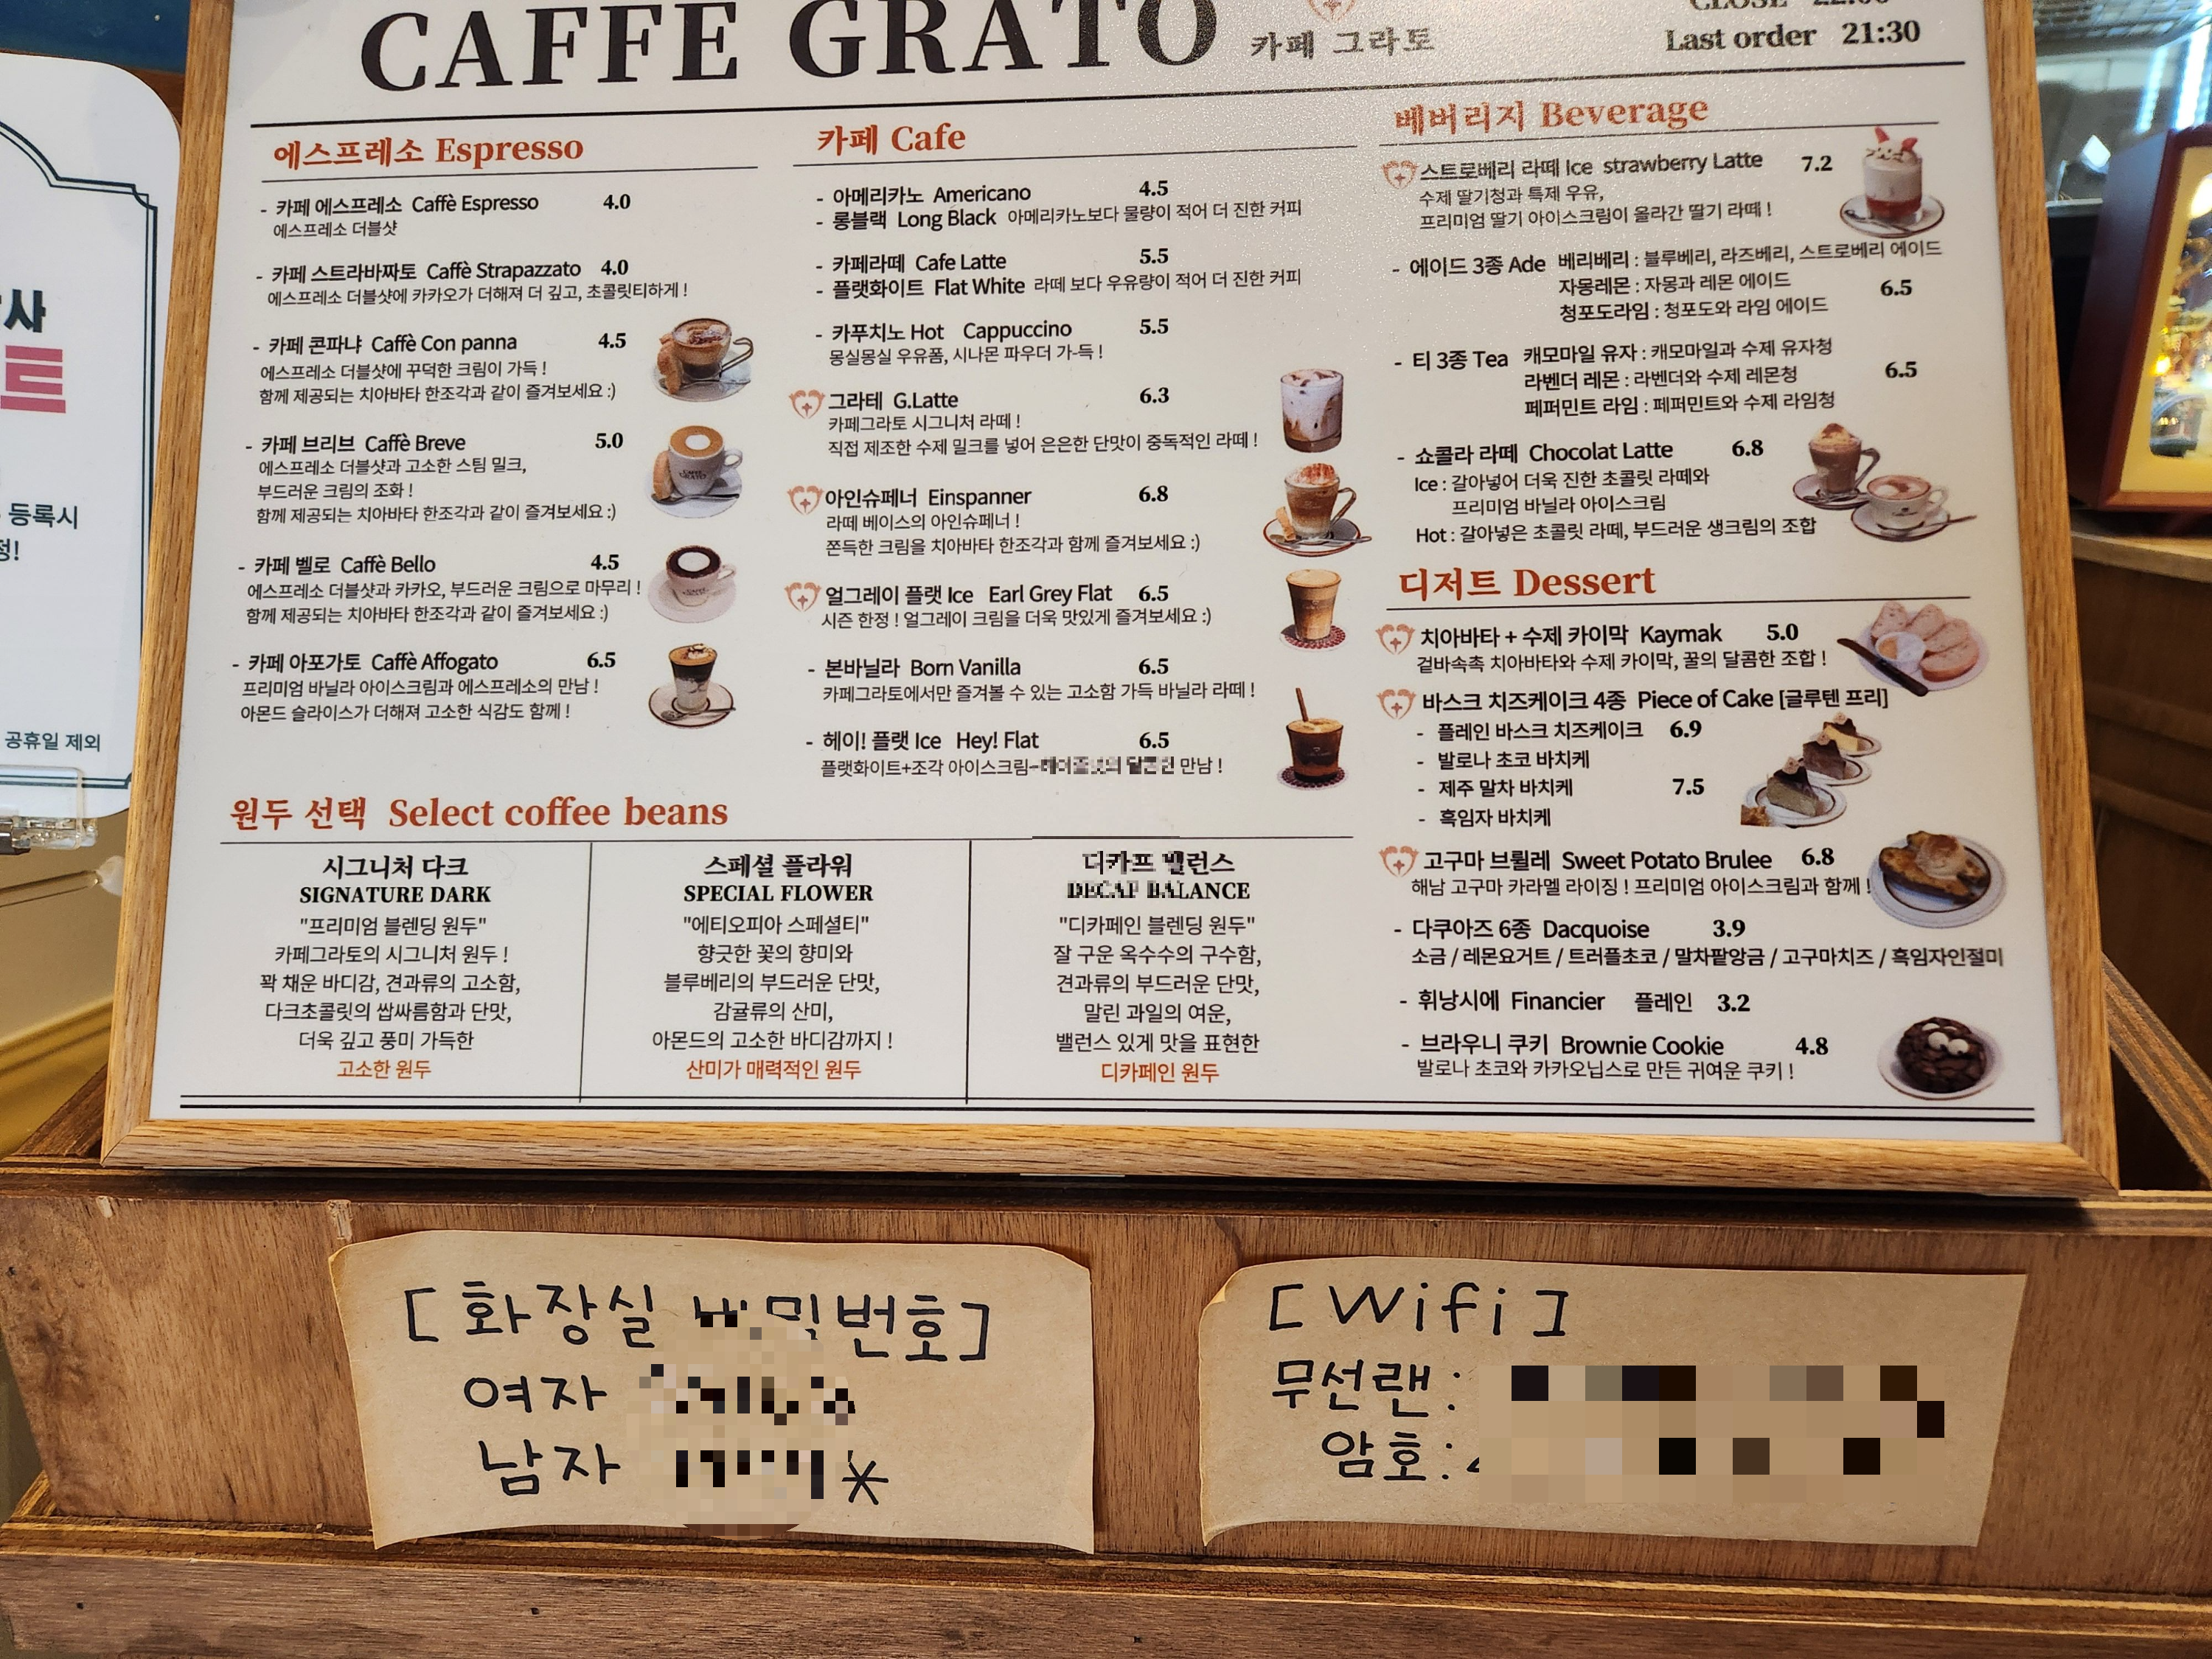 CAFFE GRATO 카페 그라토
CLOSE
Last order 21:30
에스프레소 Espresso
- 카페 에스프레소 Caffè Espresso 4.0
에스프레소 더블샷
- 카페 스트라바짜토 Caffè Strapazzato 4.0
에스프레소 더블샷에 카카오가 더해져 더 깊고, 초콜릿티하게 !
- 카페 콘파냐 Caffè Con panna 4.5
에스프레소 더블샷에 꾸덕한 크림이 가득 !
함께 제공되는 치아바타 한조각과 같이 즐겨보세요 :)
- 카페 브리브 Caffè Breve 5.0
에스프레소 더블샷과 고소한 스팀 밀크,
부드러운 크림의 조화 !
함께 제공되는 치아바타 한조각과 같이 즐겨보세요 :)
- 카페 벨로 Caffè Bello 4.5
에스프레소 더블샷과 카카오, 부드러운 크림으로 마무리 !
함께 제공되는 치아바타 한조각과 같이 즐겨보세요 :)
- 카페 아포가토 Caffè Affogato 6.5
프리미엄 바닐라 아이스크림과 에스프레소의 만남 !
아몬드 슬라이스가 더해져 고소한 식감도 함께 !
카페 Cafe
- 아메리카노 Americano 4.5
- 롱블랙 Long Black 아메리카노보다 물량이 적어 더 진한 커피
- 카페라떼 Cafe Latte 5.5
- 플랫화이트 Flat White 라떼 보다 우유량이 적어 더 진한 커피
- 카푸치노 Hot Cappuccino 5.5
몽실몽실 우유폼, 시나몬 파우더 가-득 !
그라테 G.Latte 6.3
카페그라토 시그니처 라떼 !
직접 제조한 수제 밀크를 넣어 은은한 단맛이 중독적인 라떼 !
아인슈페너 Einspanner 6.8
라떼 베이스의 아인슈페너 !
쫀득한 크림을 치아바타 한조각과 함께 즐겨보세요 :)
얼그레이 플랫 Ice Earl Grey Flat 6.5
시즌 한정 ! 얼그레이 크림을 더욱 맛있게 즐겨보세요 :)
- 본바닐라 Born Vanilla 6.5
카페그라토에서만 즐겨볼 수 있는 고소함 가득 바닐라 라떼 !
- 헤이! 플랫 Ice Hey! Flat 6.5
플랫화이트+조각 아이스크림 만남 !
베버리지 Beverage
스트로베리 라떼 Ice strawberry Latte 7.2
수제 딸기청과 특제 우유,
프리미엄 딸기 아이스크림이 올라간 딸기 라떼 !
- 에이드 3종 Ade 베리베리 : 블루베리, 라즈베리, 스트로베리 에이드
자몽레몬 : 자몽과 레몬 에이드 6.5
청포도라임 : 청포도와 라임 에이드
- 티 3종 Tea 캐모마일 유자 : 캐모마일과 수제 유자청
라벤더 레몬 : 라벤더와 수제 레몬청 6.5
페퍼민트 라임 : 페퍼민트와 수제 라임청
- 쇼콜라 라떼 Chocolat Latte 6.8
Ice : 갈아넣어 더욱 진한 초콜릿 라떼와
프리미엄 바닐라 아이스크림
Hot : 갈아넣은 초콜릿 라떼, 부드러운 생크림의 조합
디저트 Dessert
치아바타 + 수제 카이막 Kaymak 5.0
겉바속촉 치아바타와 수제 카이막, 꿀의 달콤한 조합 !
바스크 치즈케이크 4종 Piece of Cake [글루텐 프리]
- 플레인 바스크 치즈케이크 6.9
- 발로나 초코 바치케
- 제주 말차 바치케 7.5
- 흑임자 바치케
고구마 브륄레 Sweet Potato Brulee 6.8
해남 고구마 카라멜 라이징 ! 프리미엄 아이스크림과 함께 !
- 다쿠아즈 6종 Dacquoise 3.9
소금 / 레몬요거트 / 트러플초코 / 말차팥앙금 / 고구마치즈 / 흑임자인절미
- 휘낭시에 Financier 플레인 3.2
- 브라우니 쿠키 Brownie Cookie 4.8
발로나 초코와 카카오닙스로 만든 귀여운 쿠키 !
원두 선택 Select coffee beans
시그니처 다크
SIGNATURE DARK
"프리미엄 블렌딩 원두"
카페그라토의 시그니처 원두 !
꽉 채운 바디감, 견과류의 고소함,
다크초콜릿의 쌉싸름함과 단맛,
더욱 깊고 풍미 가득한
고소한 원두
스페셜 플라워
SPECIAL FLOWER
"에티오피아 스페셜티"
향긋한 꽃의 향미와
블루베리의 부드러운 단맛,
감귤류의 산미,
아몬드의 고소한 바디감까지 !
산미가 매력적인 원두
디카프 밸런스
DECAF BALANCE
"디카페인 블렌딩 원두"
잘 구운 옥수수의 구수함,
견과류의 부드러운 단맛,
말린 과일의 여운,
밸런스 있게 맛을 표현한
디카페인 원두
등록시
공휴일 제외
[ 화장실 비밀번호 ]
여자
남자 *
[ Wifi ]
무선랜 :
암호 :